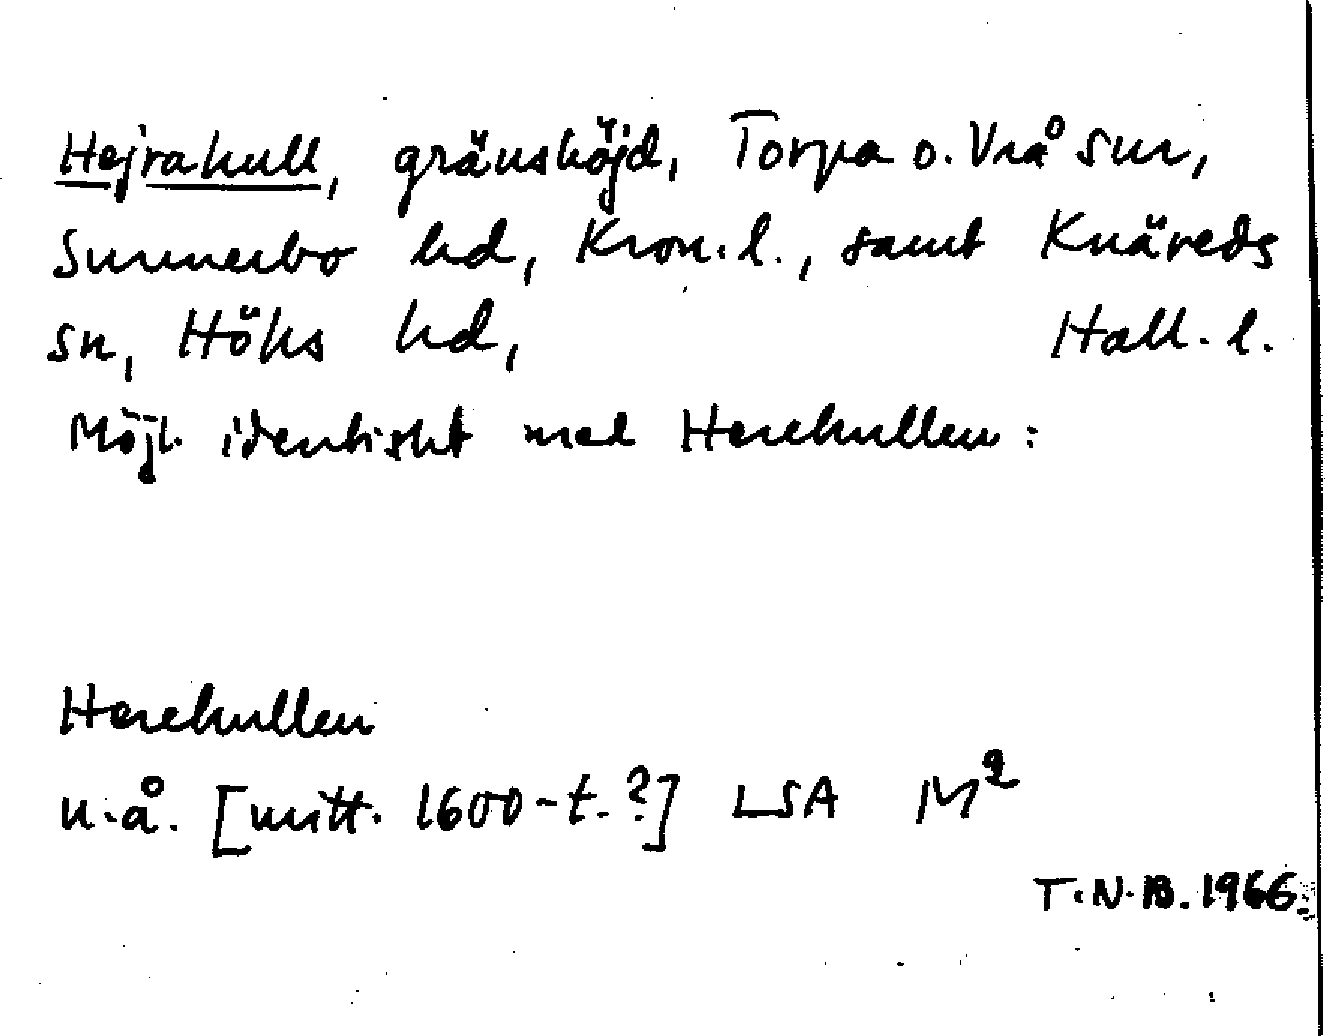 Hejrakull, gränshöjd, Torpa o. Vrå snr,
Sunnerbo hd, Kron. l., samt Knäreds
sn, Höks hd, Hall. l.
Möjl. identiskt med Herekullen:
Herekullen
u.å. [mitt. 1600-t.?] LSA M²
T.N.B. 1966